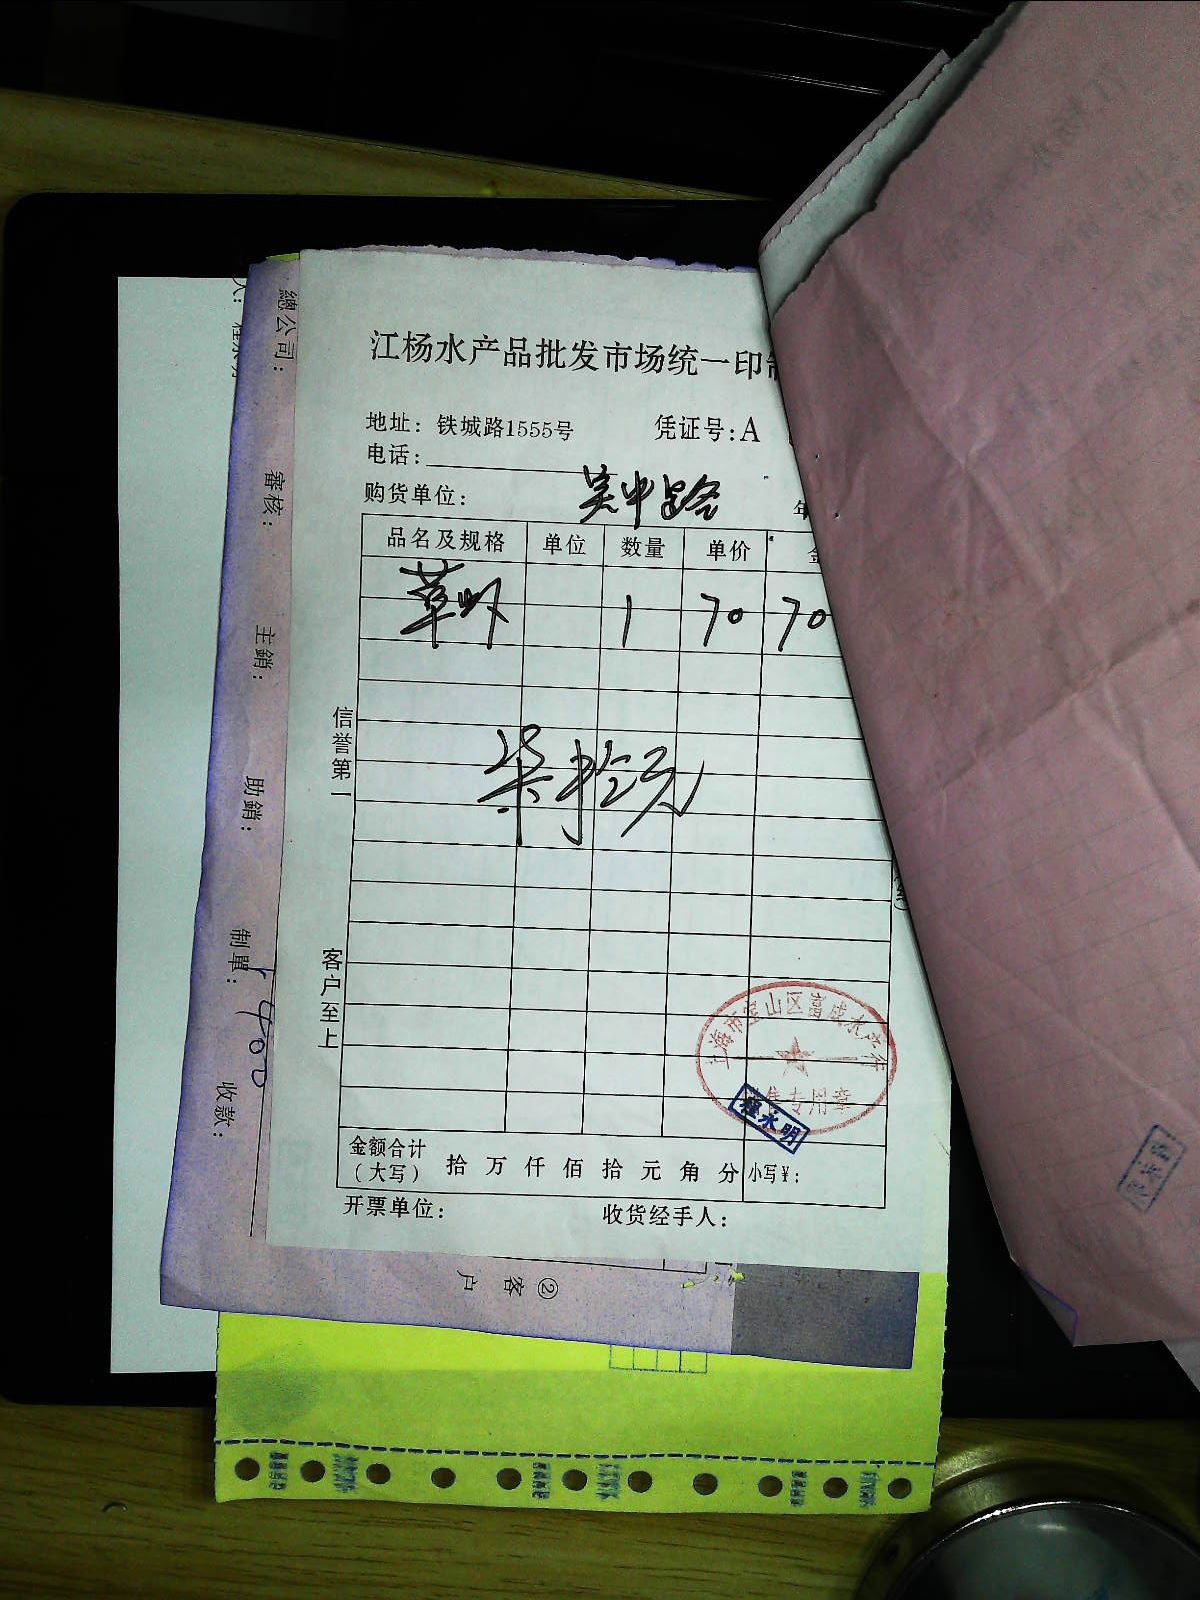 江杨水产品批发市场统一印
地址：铁城路1555号 凭证号：A
电话：
购货单位： 吴中路 年
品名及规格 单位 数量 单价 金
草虾 1 70 70
柒拾元
信誉第一
客户至上
上海市宝山区富成水产行
销售专用章
程永明
金额合计（大写） 拾 万 仟 佰 拾 元 角 分 小写¥：
开票单位： 收货经手人：
總公司：
審核：
主銷：
助銷：
制單：
400
收款：
②客户